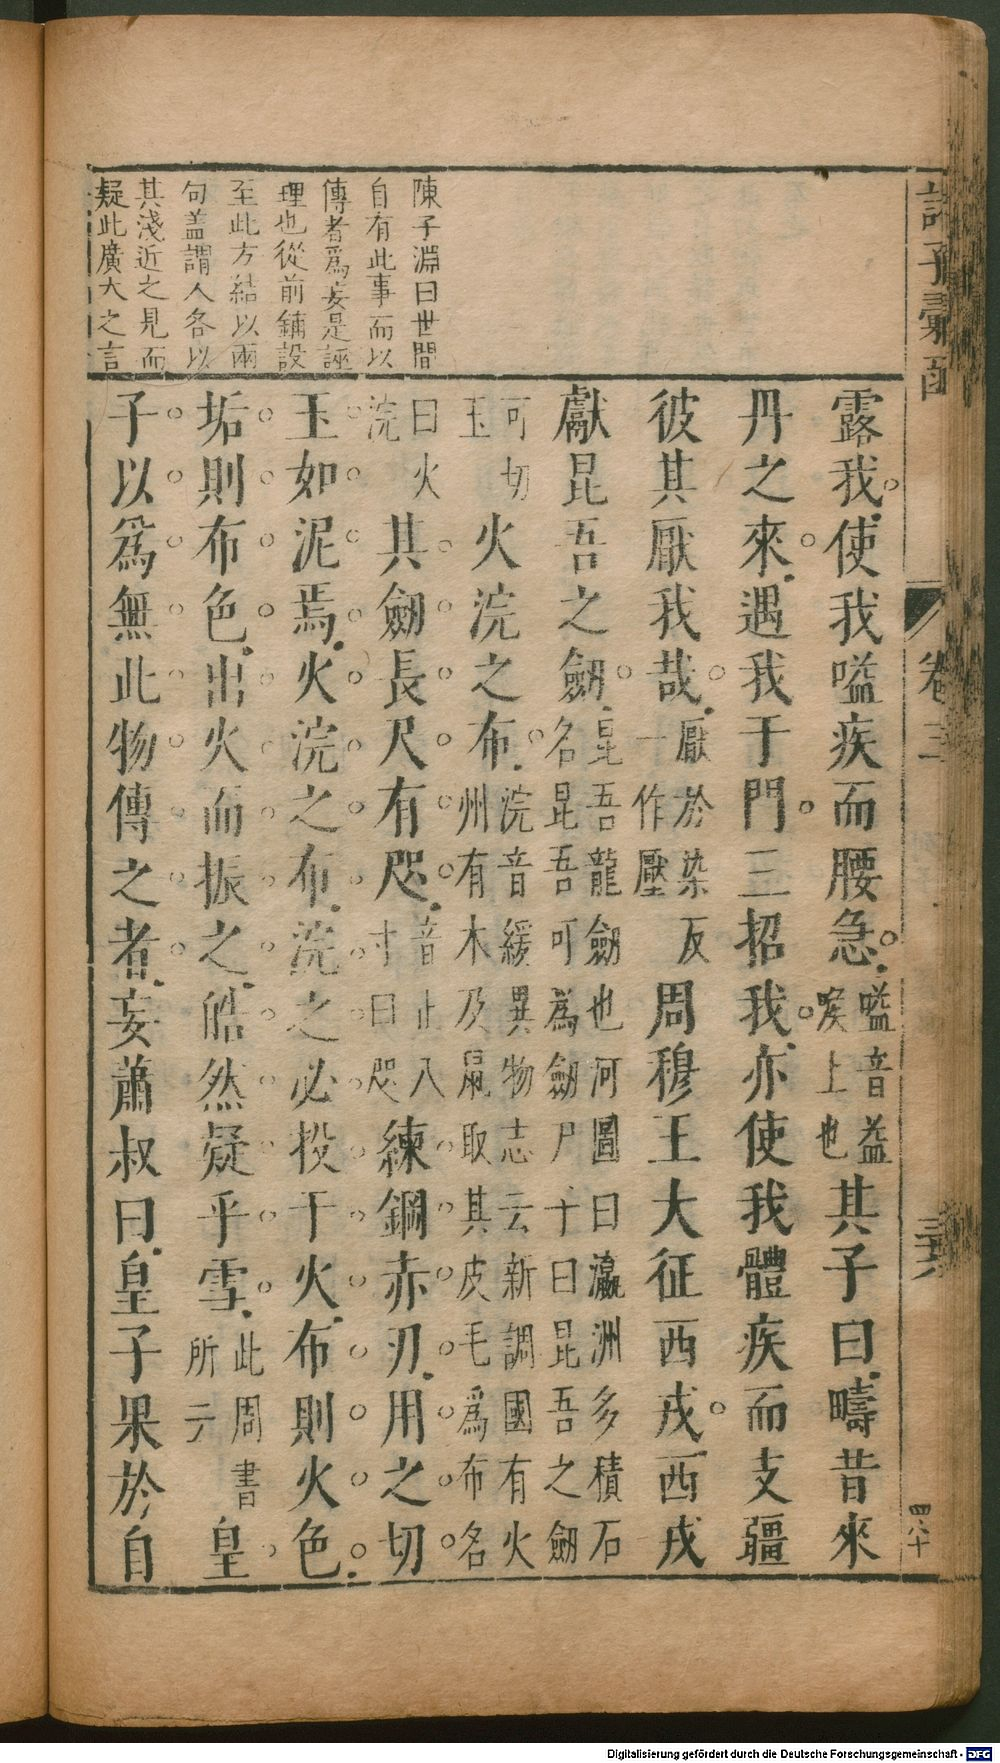 諸子彙函
卷三
四十六
陳子淵曰世間
自有此事而以
傳者爲妄是誣
理也從前鋪設
至此方結以兩
句盖謂人各以
其淺近之見而
疑此廣大之言
露我使我嗌疾而腰急嗌音益喉上也其子曰疇昔來
丹之來遇我于門三招我亦使我體疾而支疆
彼其厭我哉厭於染反一作壓周穆王大征西戎西戎
獻昆吾之劒昆吾龍劒也河圖曰瀛洲多積石名昆吾可爲劒尸十曰昆吾之劒
可切玉火浣之布浣音緩異物志云新調國有火州有木及鼠取其皮毛爲布名
曰火浣其劒長尺有咫音止八寸曰咫練鋼赤刃用之切
玉如泥焉火浣之布浣之必投于火布則火色
垢則布色出火而振之皓然疑乎雪此周書所云皇
子以爲無此物傳之者妄蕭叔曰皇子果於自
Digitalisierung gefördert durch die Deutsche Forschungsgemeinschaft - DFG